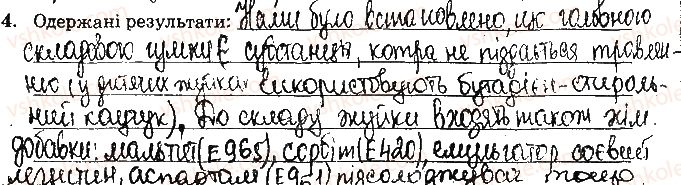 4. Одержані результати: Нами було встановлено, що головною
складовою гумки є субстанція, котра не піддається травлен-
ню (у дитячих жуйках використовують бутадієн-стироль-
ний каучук), До складу жуйки входять також хім.
добавки: мальтит (Е965), сорбіт (Е420), емульгатор соєвий
лецитин, аспартам (Е951) підсолоджувач